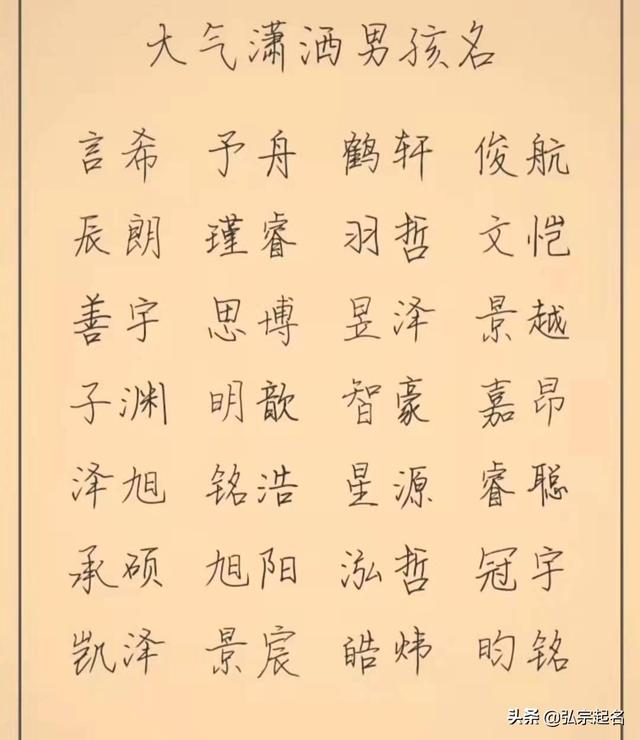 大气潇洒男孩名
言希 予舟 鹤轩 俊航
辰朗 瑾睿 羽哲 文恺
善宇 思博 昱泽 景越
子渊 明歆 智豪 嘉昂
泽旭 铭浩 星源 睿聪
承硕 旭阳 泓哲 冠宇
凯泽 景宸 皓炜 昀铭
头条 @弘宗起名